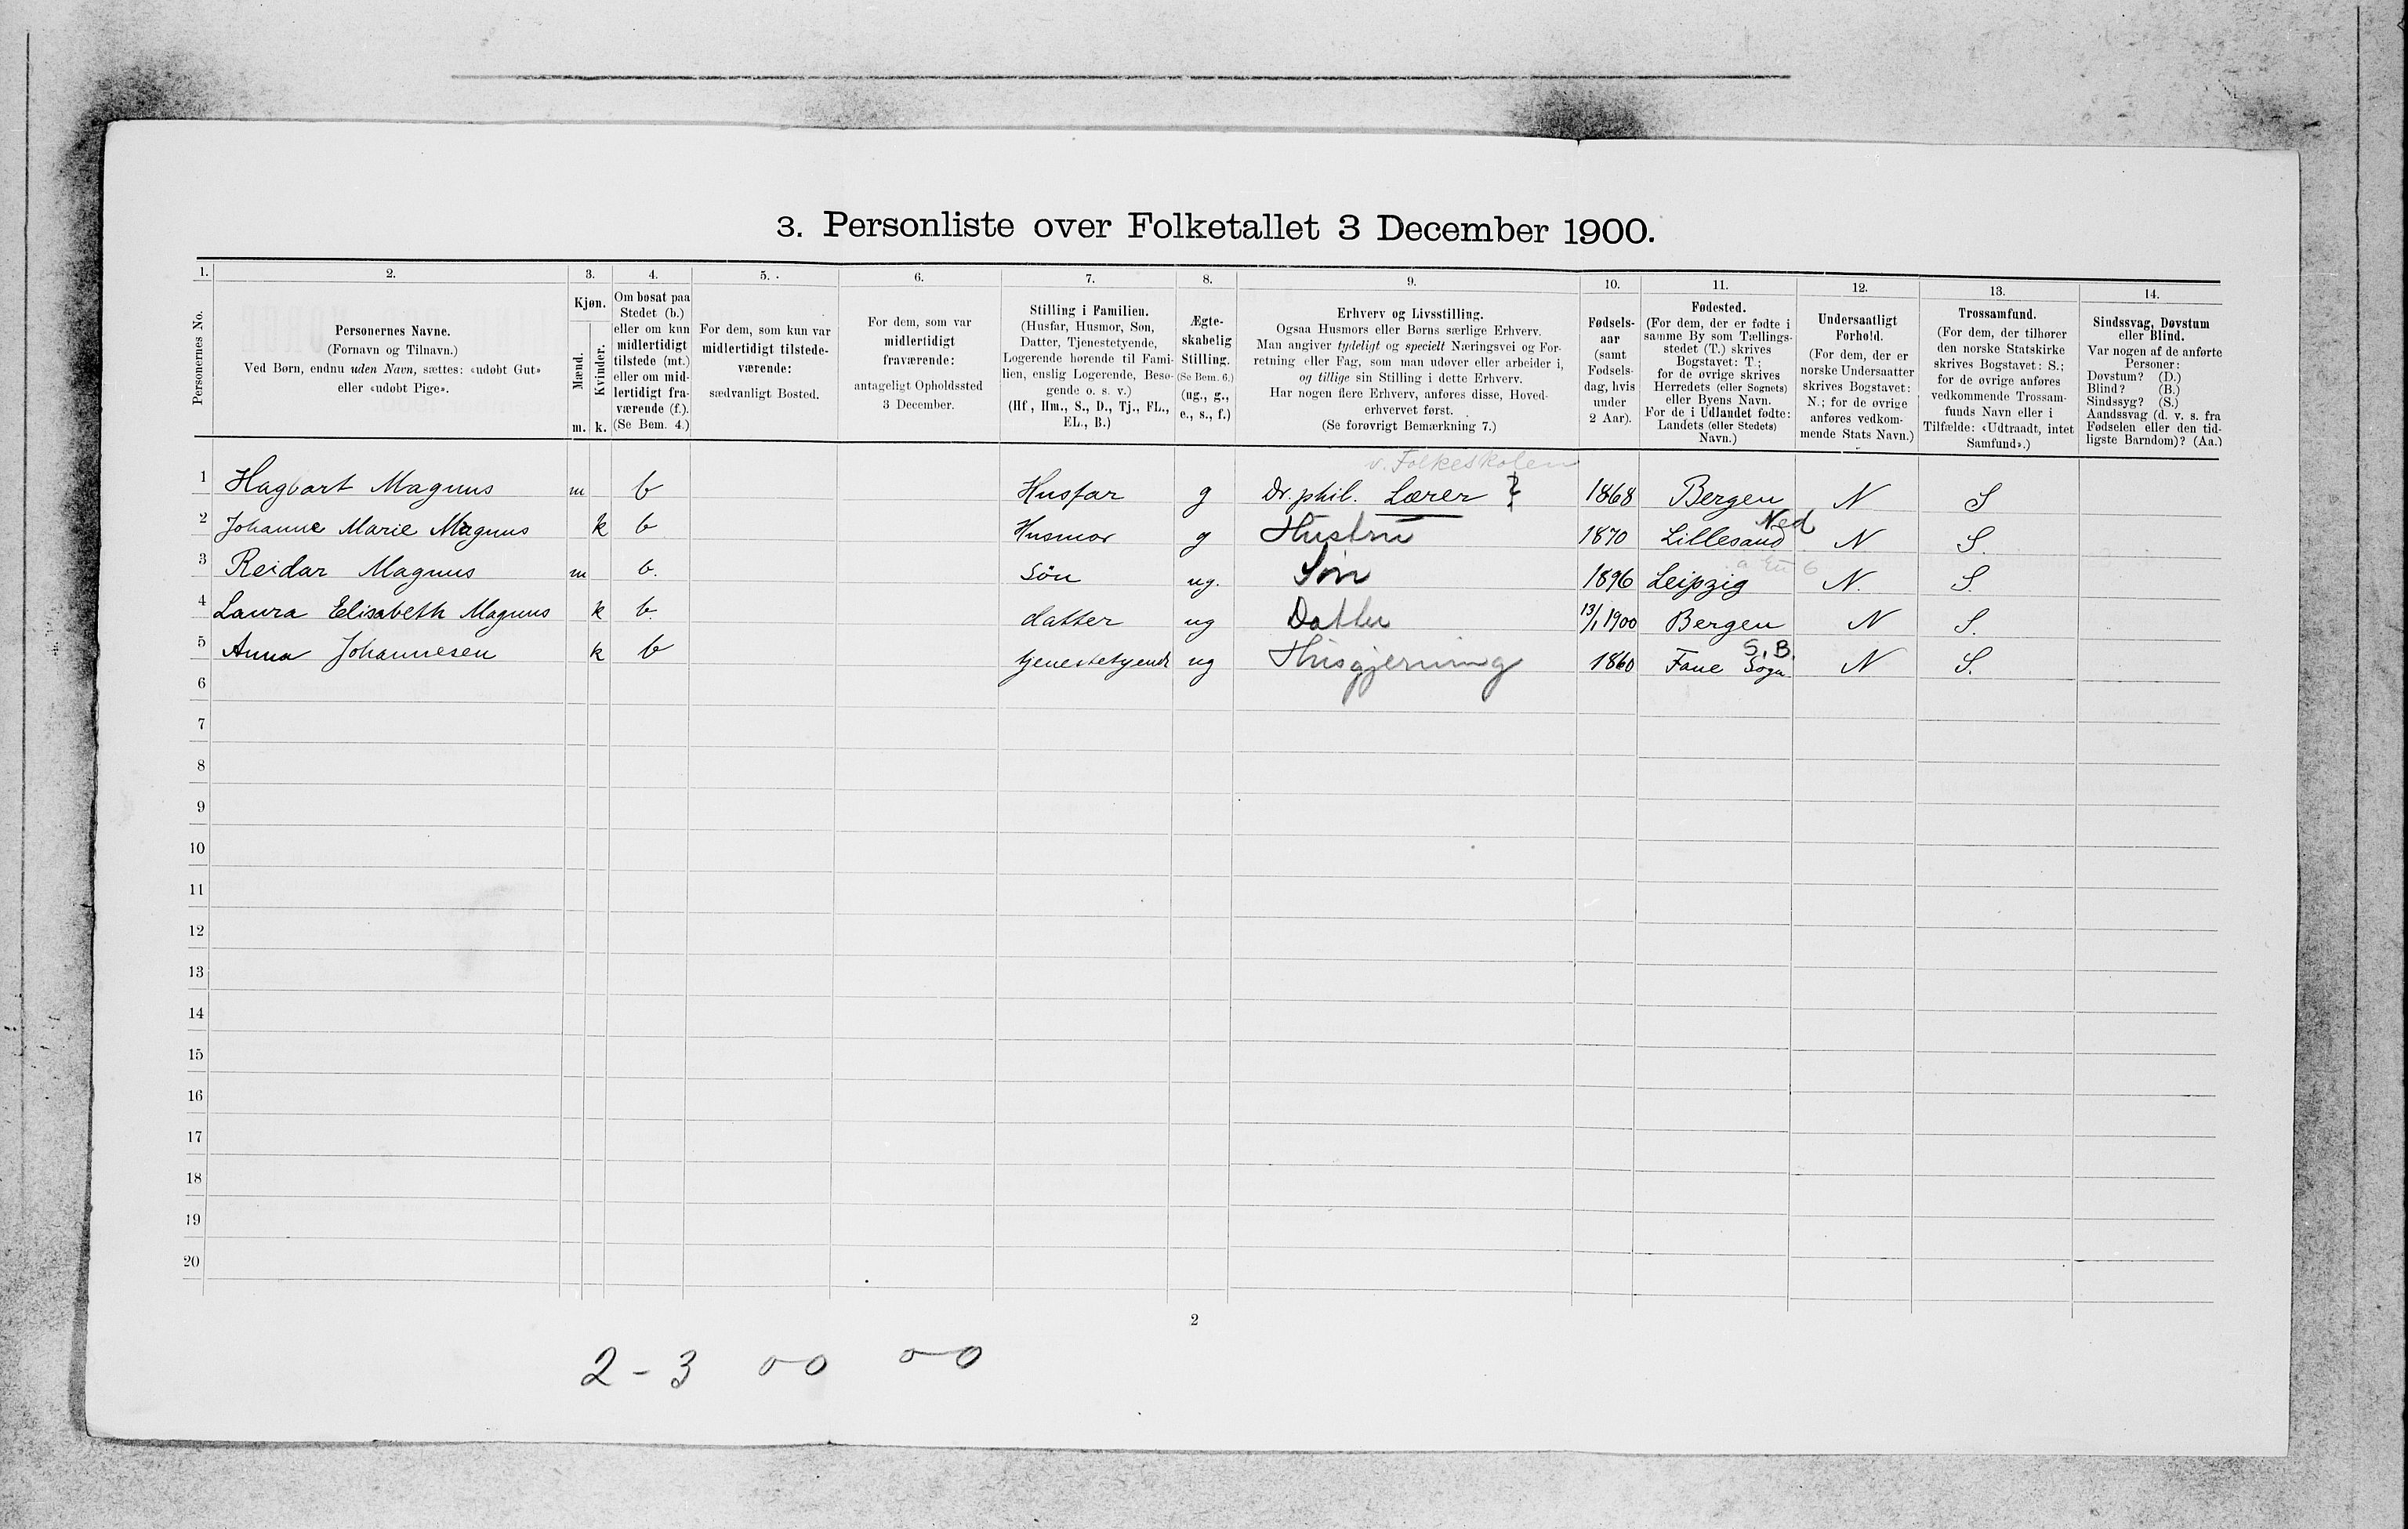 3. Personliste over Folketallet 3 December 1900.
1. 2. 3. 4. 5. 6. 7. 8. 9. 10. 11. 12. 13. 14.
Personernes No.
Personernes Navne.
(Fornavn og Tilnavn.)
Ved Børn, endnu uden Navn, sættes: «udøbt Gut»
eller «udøbt Pige».
Kjøn.
Mænd.
Kvinder.
m. k.
Om bosat paa
Stedet (b.)
eller om kun
midlertidigt
tilstede (mt.)
eller om mid-
lertidigt fra-
værende (f.).
(Se Bem. 4.)
For dem, som kun var
midlertidigt tilstede-
værende:
sædvanligt Bosted.
For dem, som var
midlertidigt
fraværende:
antageligt Opholdssted
3 December.
Stilling i Familien.
(Husfar, Husmor, Søn,
Datter, Tjenestetyende,
Logerende hørende til Fami-
lien, enslig Logerende, Besø-
gende o. s. v.)
(Hf, Hm., S., D., Tj., FL.,
EL., B.)
Ægte-
skabelig
Stilling.
(Se Bem. 6.)
(ug., g.,
e., s., f.)
Erhverv og Livsstilling.
Ogsaa Husmors eller Børns særlige Erhverv.
Man angiver tydeligt og specielt Næringsvei og For-
retning eller Fag, som man udøver eller arbeider i,
og tillige sin Stilling i dette Erhverv.
Har nogen flere Erhverv, anføres disse, Hoved-
erhvervet først.
(Se forøvrigt Bemærkning 7.)
Fødsels-
aar
(samt
Fødsels-
dag, hvis
under
2 Aar).
Fødested.
(For dem, der er fødte i
samme By som Tællings-
stedet (T.) skrives
Bogstavet: T;
for de øvrige skrives
Herredets (eller Sognets)
eller Byens Navn.
For de i Udlandet fødte:
Landets (eller Stedets)
Navn.)
Undersaatligt
Forhold.
(For dem, der er
norske Undersaatter
skrives Bogstavet:
N.; for de øvrige
anføres vedkom-
mende Stats Navn.)
Trossamfund.
(For dem, der tilhører
den norske Statskirke
skrives Bogstavet: S.;
for de øvrige anføres
vedkommende Trossam-
funds Navn eller i
Tilfælde: «Udtraadt, intet
Samfund».)
Sindssvag, Døvstum
eller Blind.
Var nogen af de anførte
Personer:
Døvstum? (D.)
Blind? (B.)
Sindssyg? (S.)
Aandssvag (d. v. s. fra
Fødselen eller den tid-
ligste Barndom)? (Aa.)
v. Folkeskolen
1 Hagbart Magnus m b Husfar g Dr. phil. Lærer 1868 Bergen N S
Ned
2 Johanne Marie Magnus k b Husmor g Hustru 1870 Lillesand N S.
3 Reidar Magnus m b. Søn ug. Søn 1896 Leipzig N. S.
4 Laura Elisabeth Magnus k b. datter ug Datter 13/1 1900 Bergen N S.
S. B.
5 Anna Johannesen k b tjenestetyende ug Husgjerning 1860 Fane Sogn N S.
6
7
8
9
10
11
12
13
14
15
16
17
18
19
20
2
2 - 3 0-0 0-0